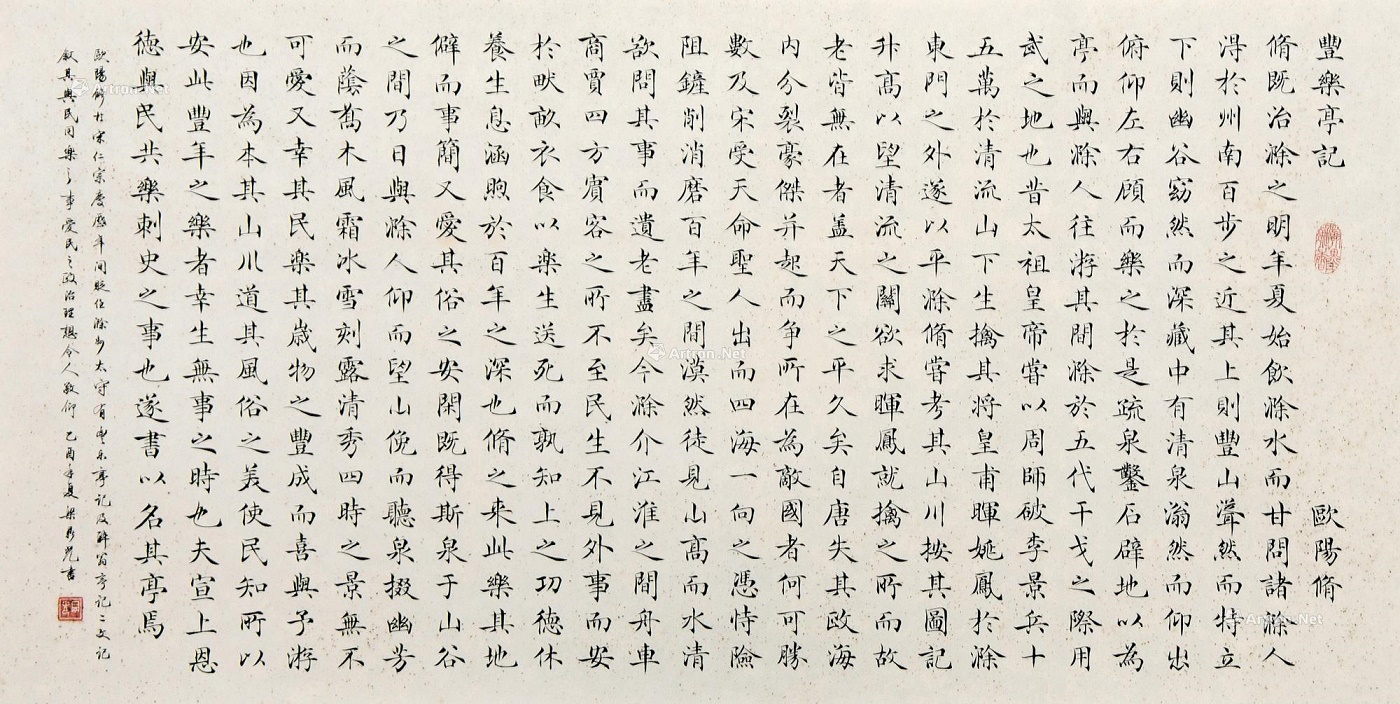 豐樂亭記 歐陽脩
脩既治滁之明年夏始飲滁水而甘問諸滁人
淂於州南百步之近其上則豐山聳然而特立
下則幽谷窈然而深藏中有清泉滃然而仰出
俯仰左右顧而樂之於是疏泉鑿石辟地以為
亭而與滁人往游其間滁於五代干戈之際用
武之地也昔太祖皇帝嘗以周師破李景兵十
五萬於清流山下生擒其將皇甫暉姚鳳於滁
東門之外遂以平滁脩嘗考其山川按其圖記
升髙以望清流之關欲求暉鳳就擒之所而故
老皆無在者蓋天下之平久矣自唐失其政海
内分裂豪傑并起而争所在為敵國者何可勝
數及宋受天命聖人出而四海一向之憑恃險
阻鏟削消磨百年之間漠然徒見山髙而水清
欲問其事而遺老盡矣今滁介江淮之間舟車
商賈四方賓客之所不至民生不見外事而安
於畎畝衣食以樂生送死而孰知上之功德休
養生息涵煦於百年之深也脩之来此樂其地
僻而事簡又愛其俗之安閑既得斯泉于山谷
之間乃日與滁人仰而望山俛而聽泉掇幽芳
而蔭喬木風霜冰雪刻露清秀四時之景無不
可愛又幸其民樂其歲物之豐成而喜與予游
也因為本其山川道其風俗之美使民知所以
安此豐年之樂者幸生無事之時也夫宣上恩
德與民共樂刺史之事也遂書以名其亭焉
歐陽脩於宋仁宗慶歷年间貶任滁州太守有豐乐亭记及醉翁亭记二文记
叙其與民同樂之事愛民之政治理想令人敬仰 乙酉年夏 書
Artron.Net
Artron.Net
Artron.Net